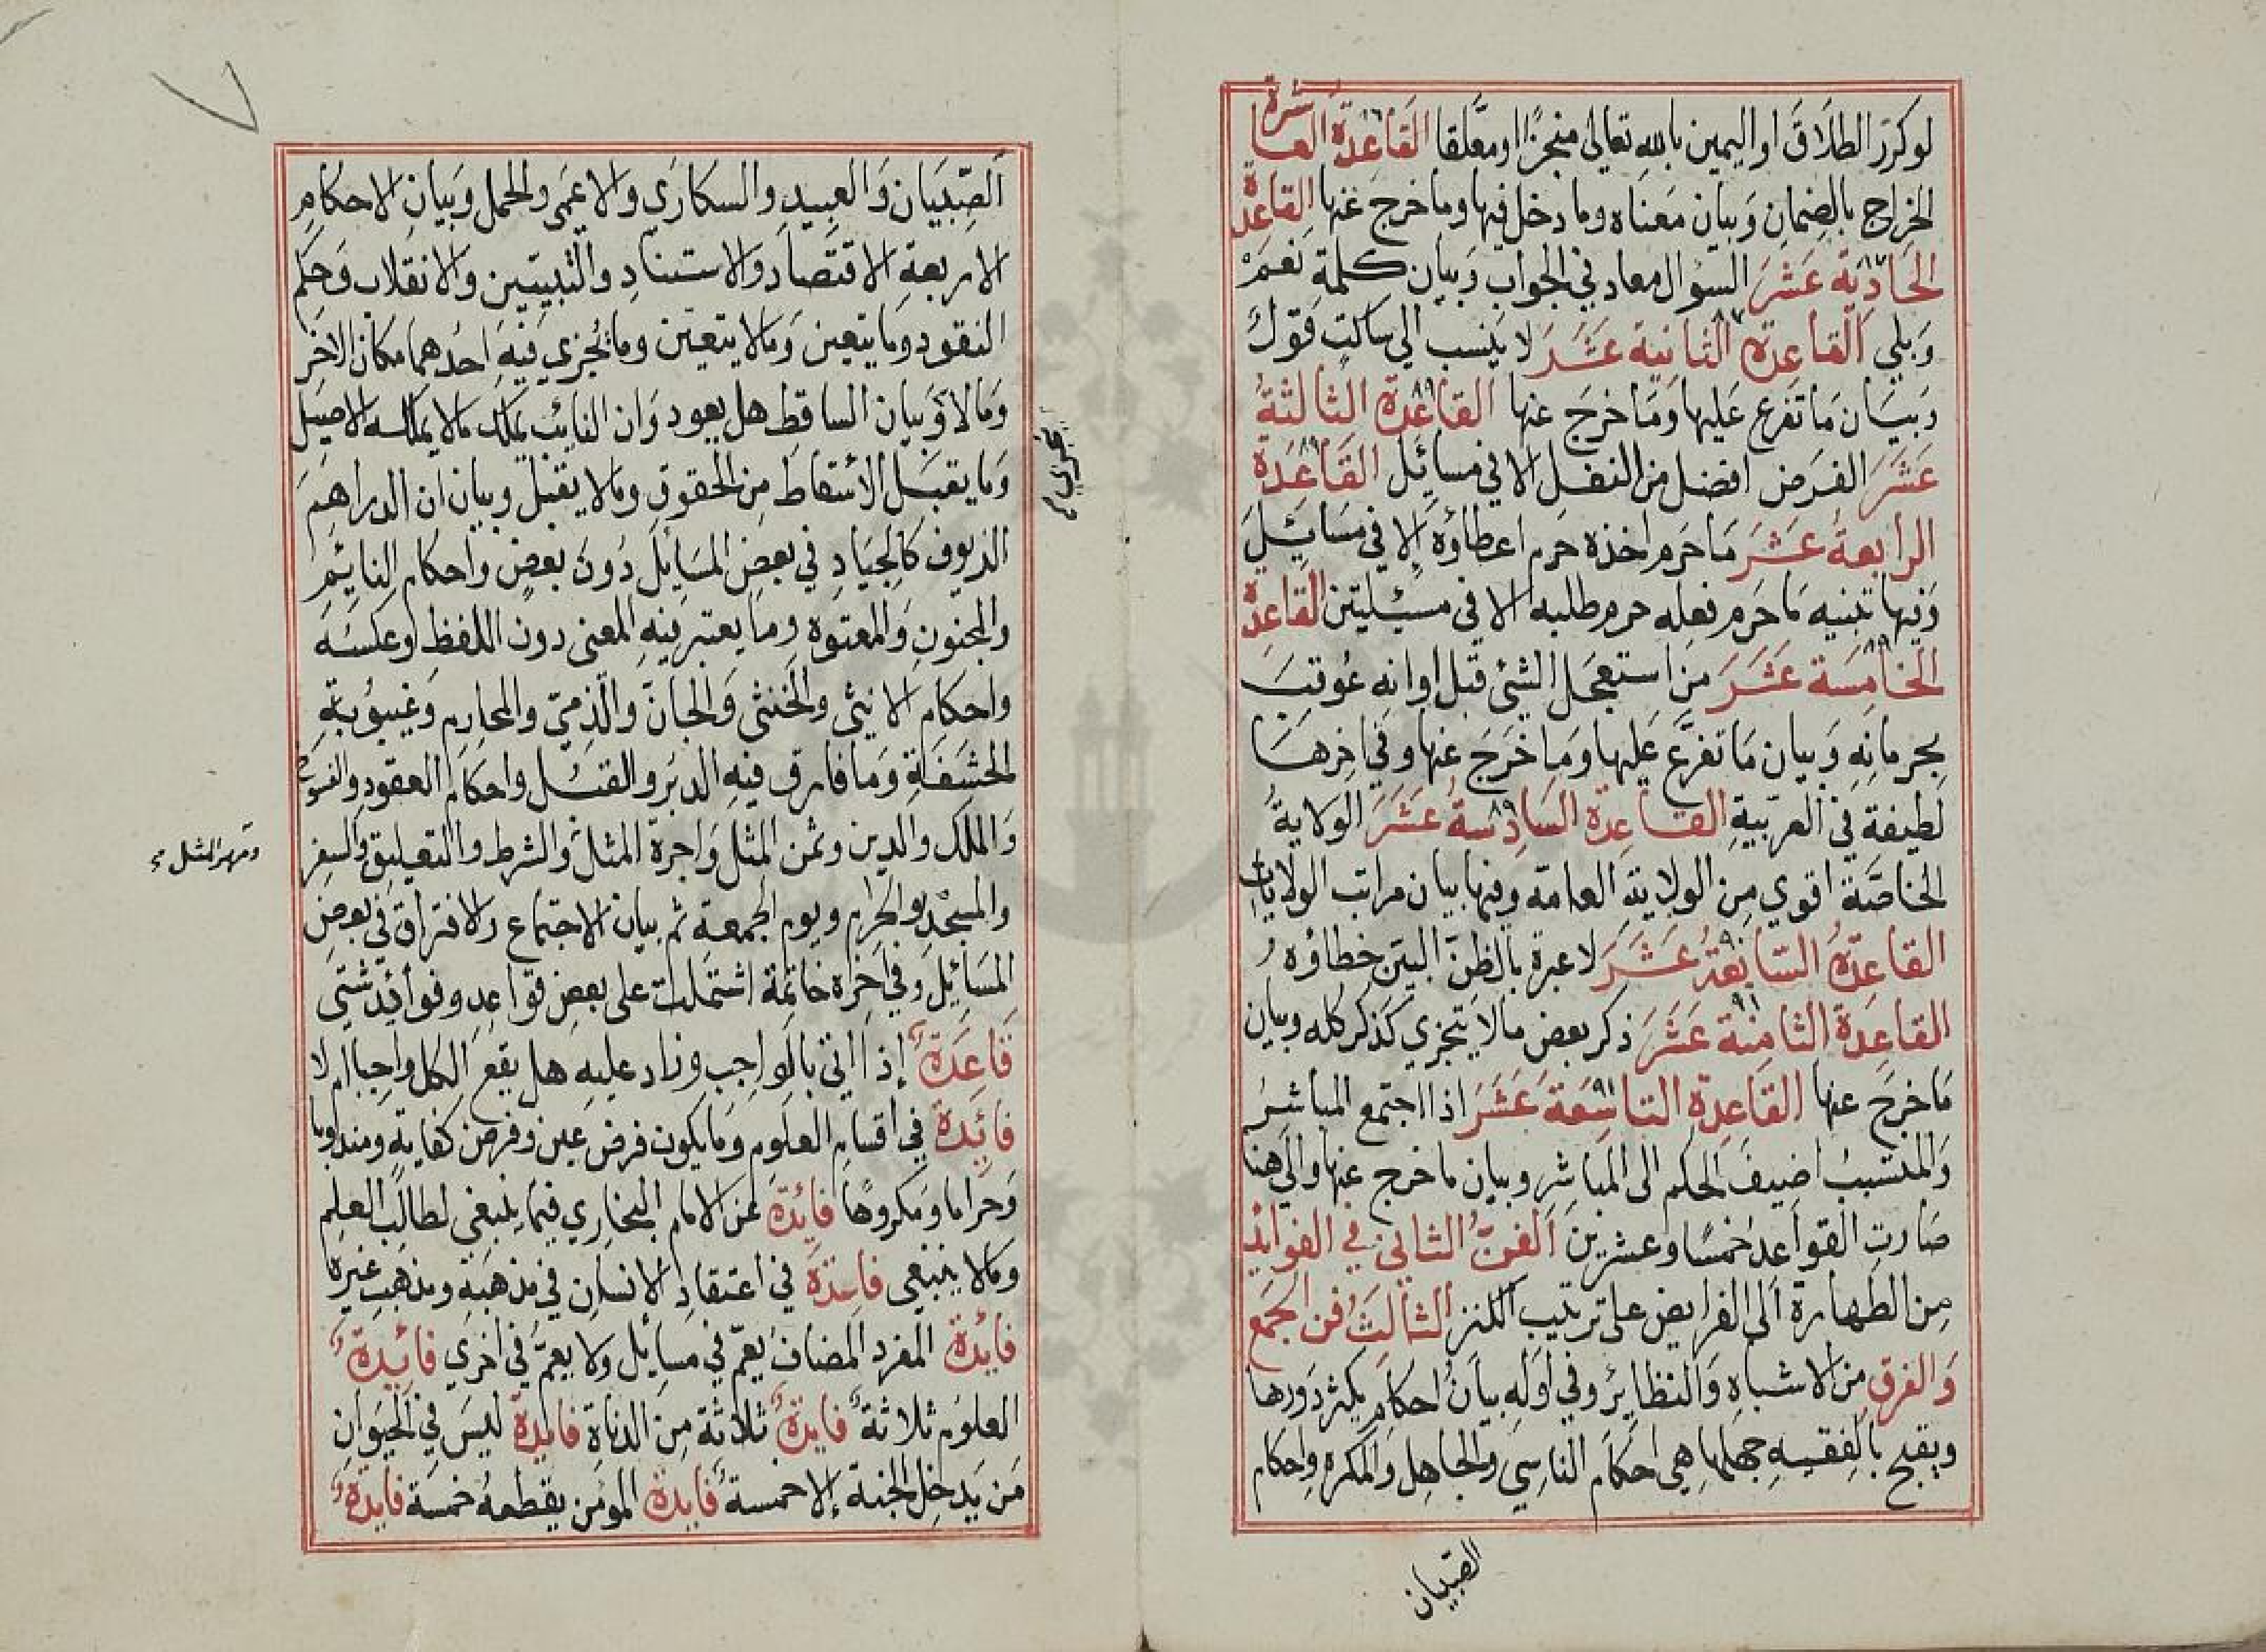 لو كرر الطلاق او اليمين بالله تعالى منجزا او معلقا القاعدة العاشرة
الخراج بالضمان وبيان معناه وما دخل فيها وما خرج عنها القاعدة
الحادية عشر السؤال معاد في الجواب وبيان كلمة نعم
وبلي القاعدة الثانية عشر لا ينسب الي ساكت قول
وبيان ما تفرع عليها وما خرج عنها القاعدة الثالثة
عشر الفرض افضل من النفل الا في مسائل القاعدة
الرابعة عشر ما حرم اخذه حرم اعطاؤه إلا في مسايل
وفيها تنبيه ما حرم فعله حرم طلبه الا في مسئلتين القاعدة
الخامسة عشر من استعجل الشئ قبل اوانه عوقب
بحرمانه وبيان ما تفرع عليها وما خرج عنها وفي اخرها
لطيفة في العربية القاعدة السادسة عشر الولاية
الخاصة اقوي من الولاية العامة وفيها بيان مراتب الولايات
القاعدة السابعة عشر لا عبرة بالظن البين خطاؤه
القاعدة الثامنة عشر ذكر بعض ما لا يتجزي كذكر كله وبيان
ما خرج عنها القاعدة التاسعة عشر اذا اجتمع المباشر
والمتسبب اضيف الحكم الى المباشر وبيان ما خرج عنها والى هنا
صارت القواعد خمسا وعشرين الفن الثاني في الفوائد
من الطهارة الى الفرايض على ترتيب الكنز الثالث فن الجمع
والفرق من الاشباه والنظائر وفي اوله بيان احكام يكثر دورها
ويقبح بالفقيه جهلها هي احكام الناسي والجاهل والمكره واحكام
الصبيان
الصبيان والعبيد والسكاري والاعمى والحمل وبيان الاحكام
الاربعة الاقتصاد والاستناد والتبيين والانقلاب وحكم
النقود وما يتعين وما لا يتعين وما يجزي فيه احدهما مكان الاخر
وما لا وبيان الساقط هل يعود وان النائب يملك ما لا يملكه الاصيل
وما يقبل الاسقاط من الحقوق وما لا يقبل وبيان ان الدراهم
الزيوف كالجياد في بعض المسائل دون بعض واحكام النائم
والمجنون والمعتوه وما يعتبر فيه المعنى دون اللفظ او عكسه
واحكام الانثى والخنثى والجان والذمي والمحارم وغيبوبة
الحشفة وما فارق فيه الدبر والقبل واحكام العقود والفسوخ
والملك والدين وثمن المثل واجرة المثل والشرط والتعليق والسفر
ومهر المثل
والمسجد والحرام ويوم الجمعة ثم بيان الاجتماع والافتراق في بعض
المسائل وفي اخره خاتمة اشتملت على بعض قواعد وفوائد شتي
قاعدة إذا اتى بالواجب وزاد عليه هل يقع الكل واجبا ام لا
فائدة في اقسام العلوم وما يكون فرض عين وفرض كفاية ومندوبا
وحراما ومكروها فائدة عن الامام البخاري فيما ينبغي لطالب العلم
وما لا ينبغي فائدة في اعتقاد الانسان في مذهبه ومذهب غيره
فائدة المفرد المضاف يعم في مسائل ولا يعم في اخري فائدة
العلوم ثلاثة فايدة ثلاثة من الدناة فايدة ليس في الحيوان
من يدخل الجنة إلا خمسة فايدة المؤمن يقطعه خمسة فايدة